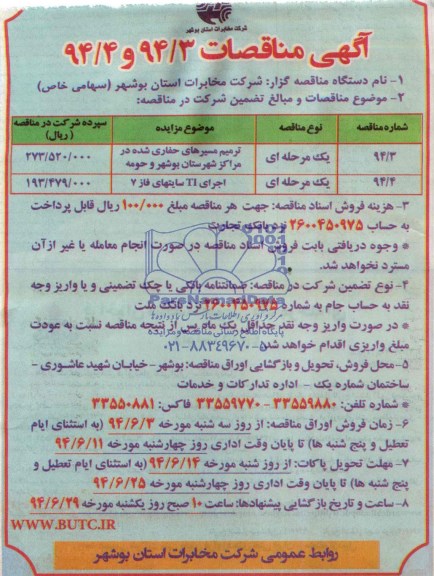 شرکت مخابرات استان بوشهر
آگهی مناقصات ۹۴/۳ و ۹۴/۴
۱- نام دستگاه مناقصه گزار: شرکت مخابرات استان بوشهر (سهامی خاص)
۲- موضوع مناقصات و مبالغ تضمین شرکت در مناقصه:
شماره مناقصه نوع مناقصه موضوع مزایده سپرده شرکت در مناقصه (ریال)
۹۴/۳ یک مرحله ای ترمیم مسیرهای حفاری شده در مراکز شهرستان بوشهر و حومه ۲۷۳/۵۲۰/۰۰۰
۹۴/۴ یک مرحله ای اجرای TI سایتهای فاز ۷ ۱۹۳/۴۷۹/۰۰۰
۳- هزینه فروش اسناد مناقصه: جهت هر مناقصه مبلغ ۱۰۰/۰۰۰ ریال قابل پرداخت
به حساب ۲۶۰۰۴۵۰۹۷۵ نزد بانک تجارت
* وجوه دریافتی بابت فروش اسناد مناقصه در صورت انجام معامله یا غیر از آن
مسترد نخواهد شد.
۴- نوع تضمین شرکت در مناقصه: ضمانتنامه بانکی یا چک تضمینی و یا واریز وجه
نقد به حساب جام به شماره ۲۶۰۰۴۵۰۹۷۵ نزد بانک ملت
* در صورت واریز وجه نقد حداقل یک ماه پس از نتیجه مناقصه نسبت به عودت
مبلغ واریزی اقدام خواهد شد.
۵- محل فروش، تحویل و بازگشایی اوراق مناقصه: بوشهر- خیابان شهید عاشوری-
ساختمان شماره یک - اداره تدارکات و خدمات
* شماره تلفن: ۳۳۵۵۹۸۸۰ - ۳۳۵۵۹۷۷۰ فاکس: ۳۳۵۵۰۸۸۱
۶- زمان فروش اوراق مناقصه: از روز سه شنبه مورخه ۹۴/۶/۳ (به استثنای ایام
تعطیل و پنج شنبه ها) تا پایان وقت اداری روز چهارشنبه مورخه ۹۴/۶/۱۱
۷- مهلت تحویل پاکات: از روز شنبه مورخه ۹۴/۶/۱۴ (به استثنای ایام تعطیل و
پنج شنبه ها) تا پایان وقت اداری روز چهارشنبه مورخه ۹۴/۶/۲۵
۸- ساعت و تاریخ بازگشایی پیشنهادها: ساعت ۱۰ صبح روز یکشنبه مورخه ۹۴/۶/۲۹
WWW.BUTC.IR
روابط عمومی شرکت مخابرات استان بوشهر
ParsNamadData
پایگاه اطلاع رسانی مناقصه و مزایده
۰۲۱-۸۸۳۴۹۶۷۰-۵